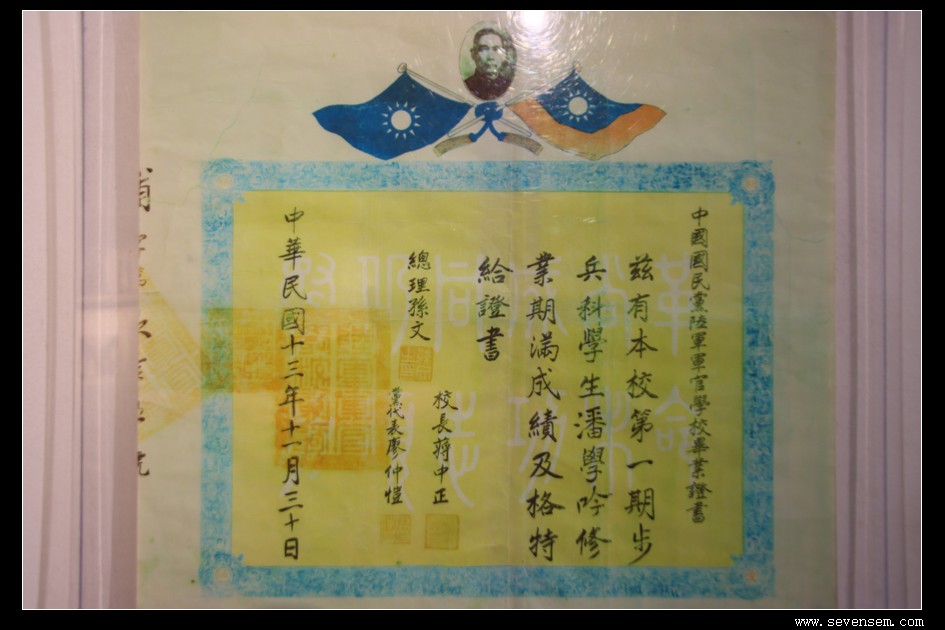 中國國民黨陸軍軍官學校畢業證書
茲有本校第一期步
兵科學生潘學吟修
業期滿成績及格特
給證書
總理孫文
校長蔣中正
黨代表廖仲愷
中華民國十三年十一月三十日
www.sevensem.com